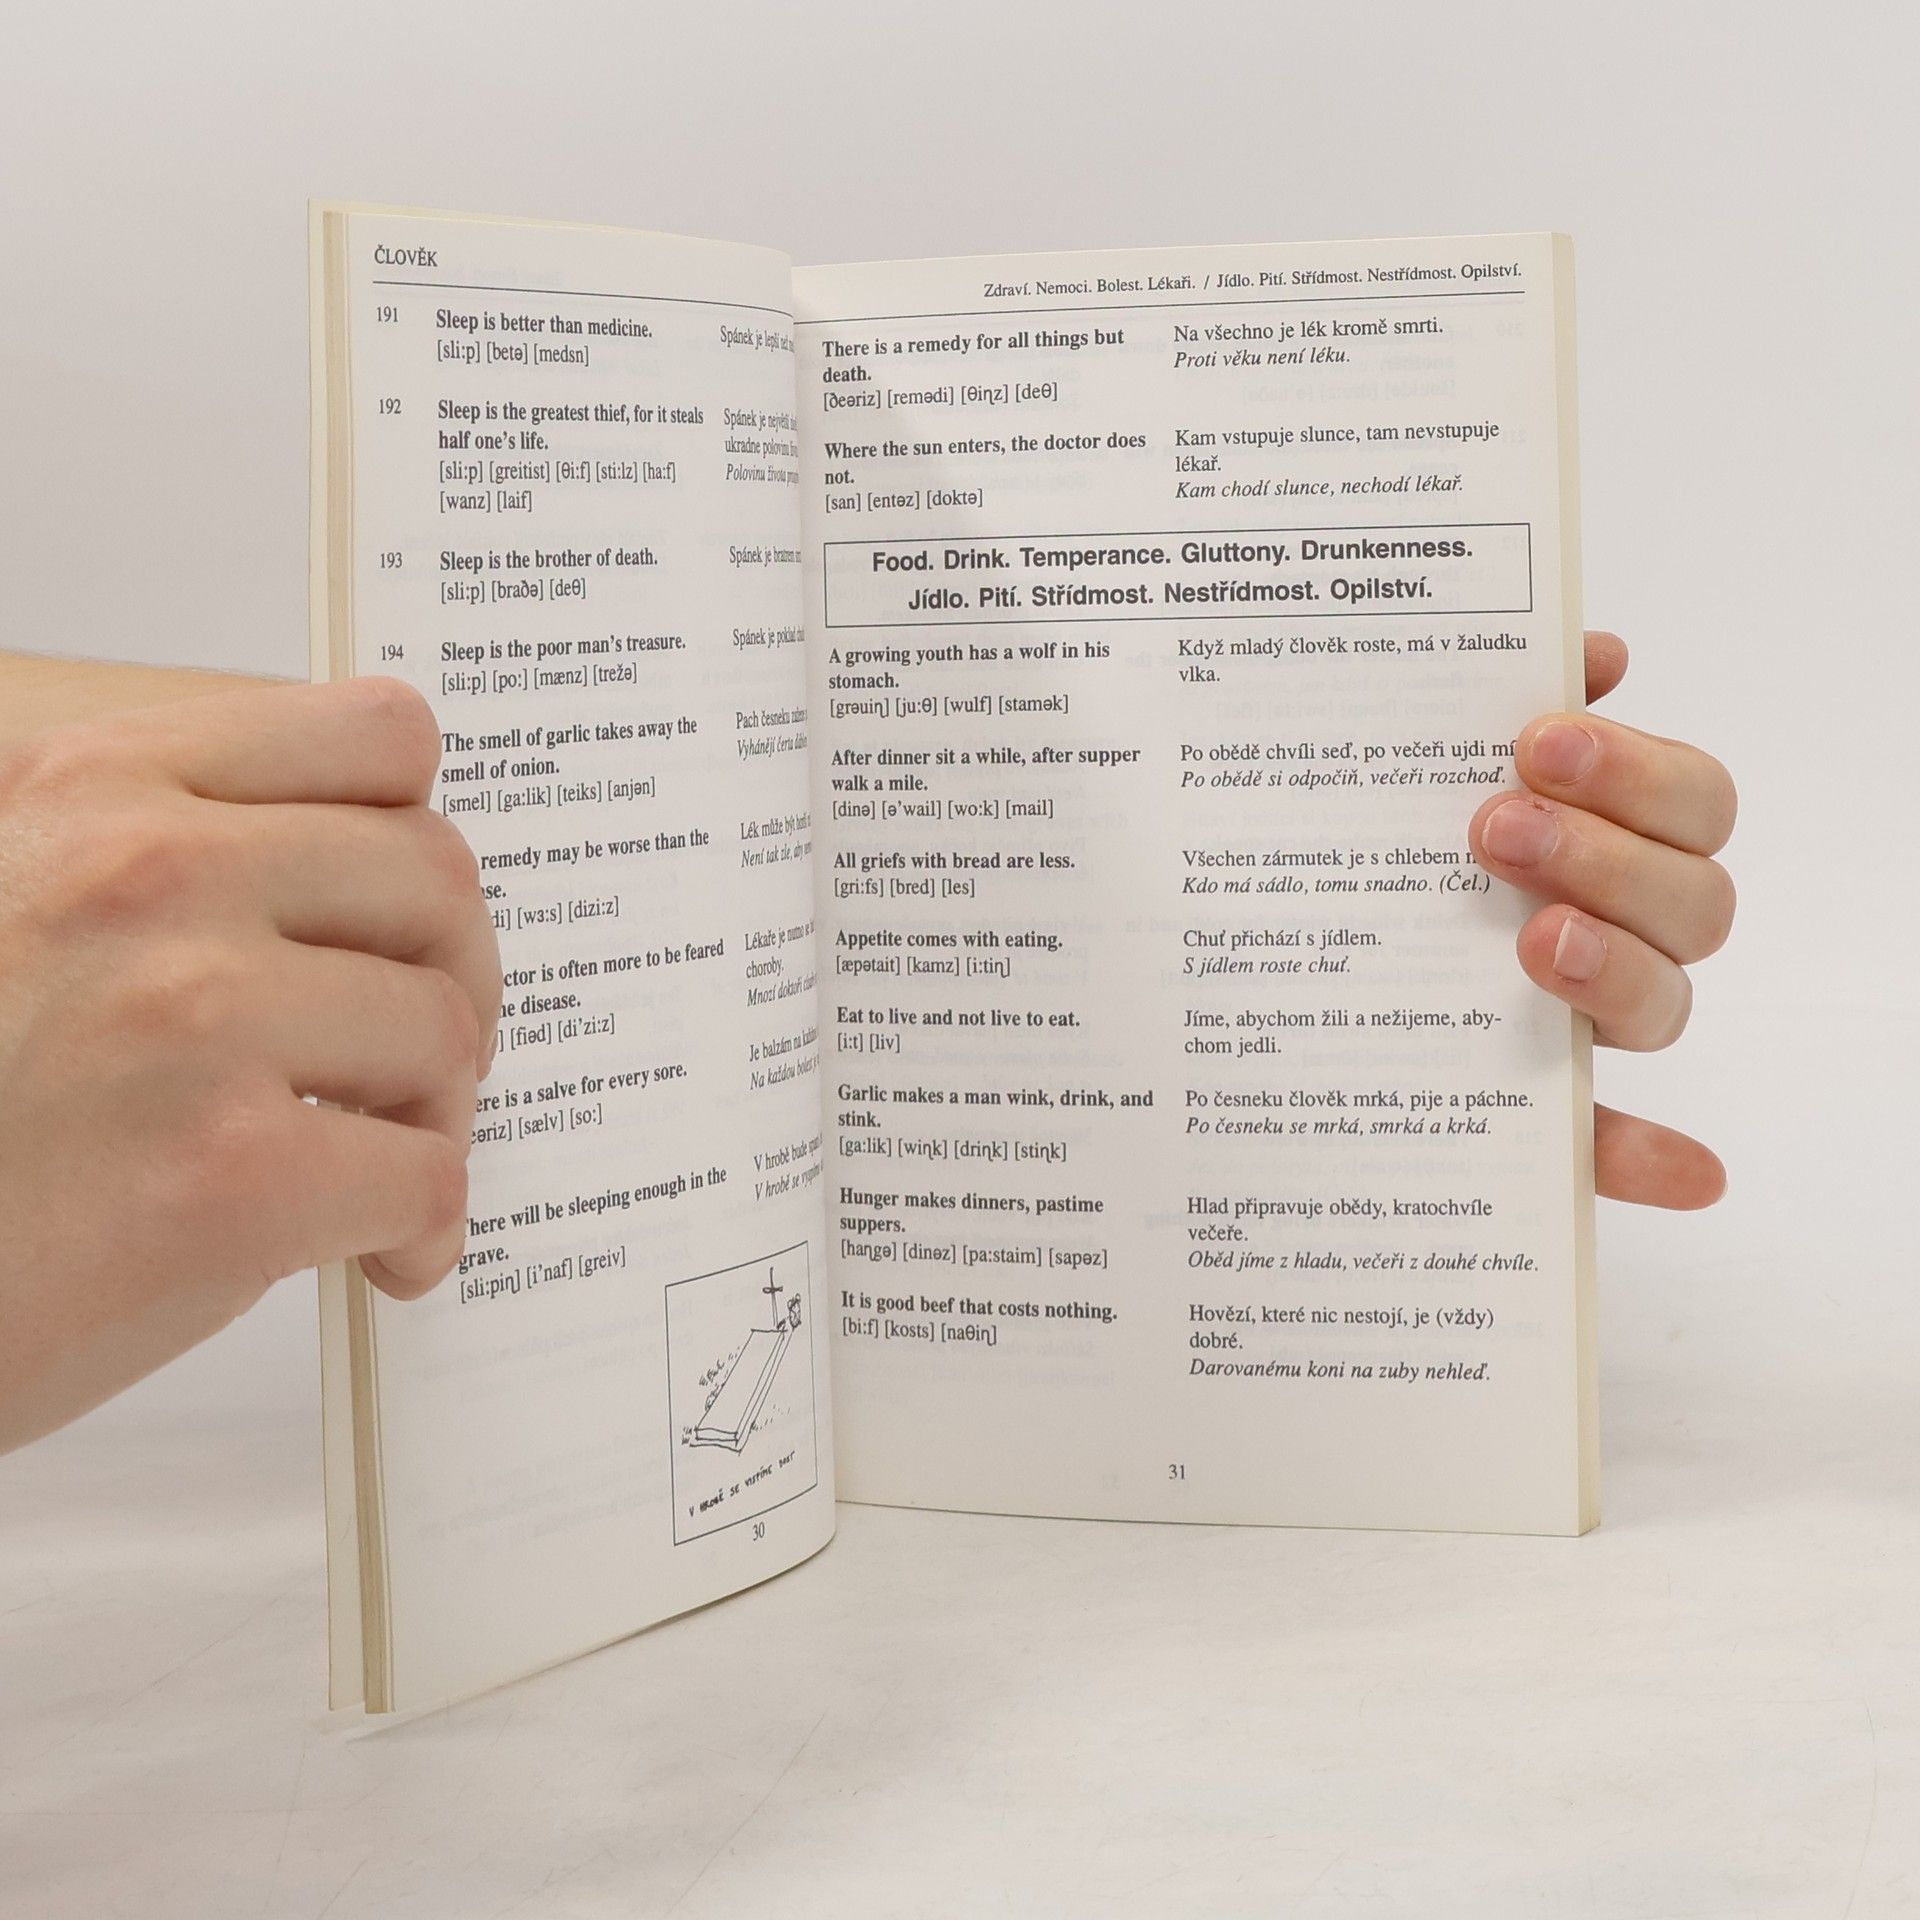 ČLOVĚK
191
Sleep is better than medicine.
[sli:p] [betə] [medsn]
Spánek je lepší než
192
Sleep is the greatest thief, for it steals
half one’s life.
[sli:p] [greitist] [θi:f] [sti:lz] [ha:f]
[wanz] [laif]
Spánek je největší
ukradne polovinu
Polovinu života
193
Sleep is the brother of death.
[sli:p] [braðə] [deθ]
Spánek je bratrem
194
Sleep is the poor man’s treasure.
[sli:p] [po:] [mænz] [trežə]
Spánek je poklad
The smell of garlic takes away the
smell of onion.
[smel] [ga:lik] [teiks] [anjən]
Pach česneku
Vyhánějí čerta
remedy may be worse than the
[wɜ:s] [dizi:z]
Lék může být horší
Není tak zle, aby
is often more to be feared
disease.
[fiəd] [di’zi:z]
Lékaře je nutno se
choroby.
Mnozí doktoři
is a salve for every sore.
[sælv] [so:]
Je balzám na
Na každou bolest je
There will be sleeping enough in the
grave.
[sli:piɳ] [i’naf] [greiv]
V hrobě bude
V hrobě se
V HROBĚ SE VYSPÍME DOST
30
Zdraví. Nemoci. Bolest. Lékaři. / Jídlo. Pití. Střídmost. Nestřídmost. Opilství.
There is a remedy for all things but
death.
[ðeəriz] [remədi] [θiɳz] [deθ]
Na všechno je lék kromě smrti.
Proti věku není léku.
Where the sun enters, the doctor does
not.
[san] [entəz] [doktə]
Kam vstupuje slunce, tam nevstupuje
lékař.
Kam chodí slunce, nechodí lékař.
Food. Drink. Temperance. Gluttony. Drunkenness.
Jídlo. Pití. Střídmost. Nestřídmost. Opilství.
A growing youth has a wolf in his
stomach.
[grəuiɳ] [ju:θ] [wulf] [stamək]
Když mladý člověk roste, má v žaludku
vlka.
After dinner sit a while, after supper
walk a mile.
[dinə] [ə’wail] [wo:k] [mail]
Po obědě chvíli seď, po večeři ujdi
Po obědě si odpočiň, večeři rozchoď.
All griefs with bread are less.
[gri:fs] [bred] [les]
Všechen zármutek je s chlebem
Kdo má sádlo, tomu snadno. (Čel.)
Appetite comes with eating.
[æpətait] [kamz] [i:tiɳ]
Chuť přichází s jídlem.
S jídlem roste chuť.
Eat to live and not live to eat.
[i:t] [liv]
Jíme, abychom žili a nežijeme, aby-
chom jedli.
Garlic makes a man wink, drink, and
stink.
[ga:lik] [wiɳk] [driɳk] [stiɳk]
Po česneku člověk mrká, pije a páchne.
Po česneku se mrká, smrká a krká.
Hunger makes dinners, pastime
suppers.
[haɳgə] [dinəz] [pa:staim] [sapəz]
Hlad připravuje obědy, kratochvíle
večeře.
Oběd jíme z hladu, večeři z douhé chvíle.
It is good beef that costs nothing.
[bi:f] [kosts] [naθiɳ]
Hovězí, které nic nestojí, je (vždy)
dobré.
Darovanému koni na zuby nehleď.
31